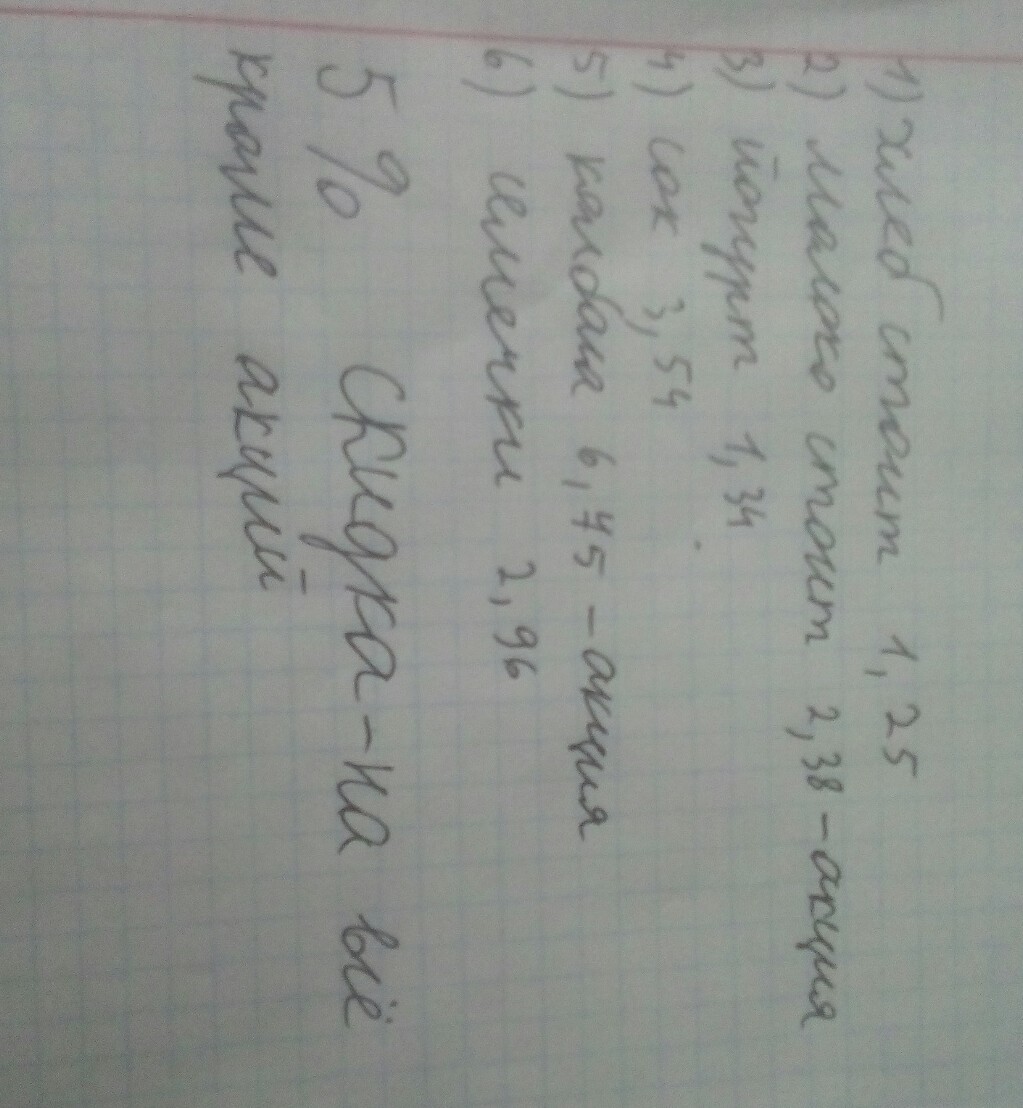 1) хлеб стоит 1,25
2) малоко стоит 2,38 - акция
3) йогурт 1,34
4) сок 3,54
5) калбаса 6,75 - акция
6) симечки 2,96
5% Скидка - на всё
кроме акций